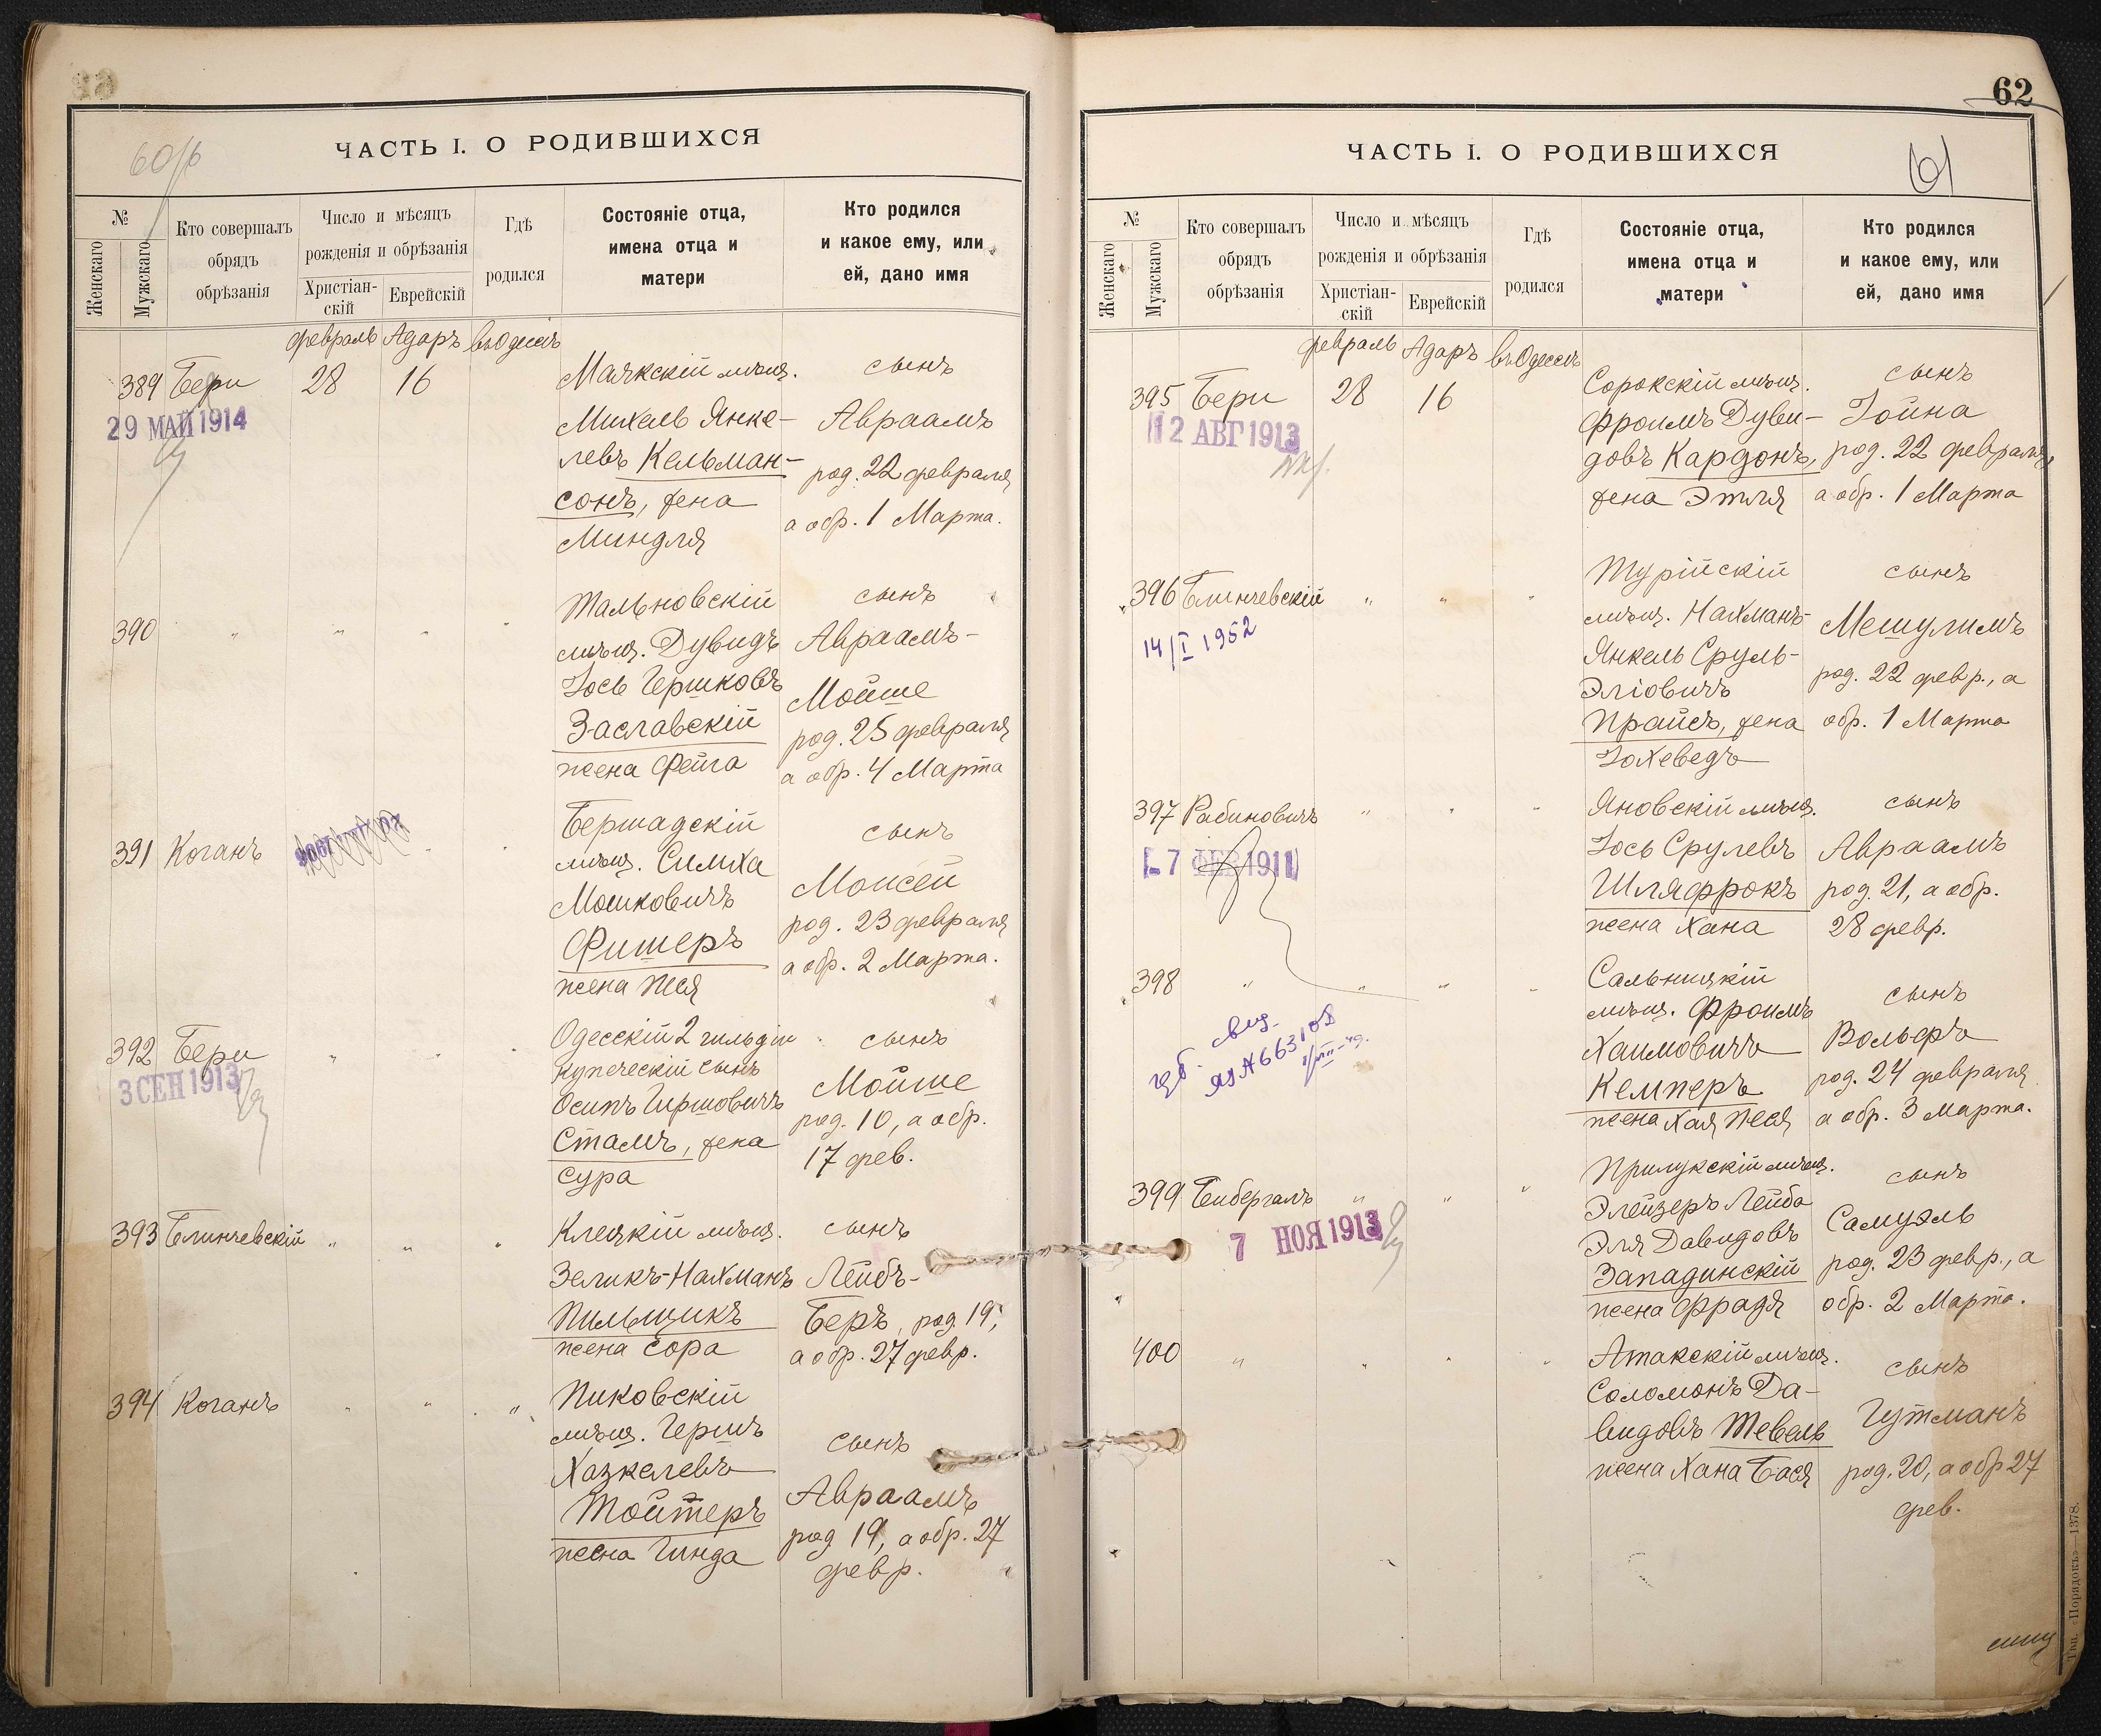 60/б
ЧАСТЬ I. О РОДИВШИХСЯ
№
Женскаго
Мужскаго
Кто совершалъ
обрядъ
обрѣзанія
Число и мѣсяцъ
рожденія и обрѣзанія
Христіан-
скій
Еврейскій
Гдѣ
родился
Состояніе отца,
имена отца и
матери
Кто родился
и какое ему, или
ей, дано имя
февраль Адаръ въ Одессѣ
389 Бери 28 16
29 МАЙ 1914
Маякскій мѣщ.
Михель Янке-
левъ Кельман-
сонъ, жена
Миндля
сынъ
Авраамъ
род. 22 февраля
а обр. 1 Марта.
390 " " " "
Тальновскій
мѣщ. Дувидъ
Іось Гершковъ
Заславскій
жена Фейга
сынъ
Авраамъ-
Мойше
род. 25 февраля
а обр. 4 Марта
391 Коганъ " "
Бершадскій
мѣщ. Симха
Мошковичъ
Фишеръ
жена Песя
сынъ
Моисей
род. 23 февраля
а обр. 2 Марта.
392 Бери " " "
3 СЕН 1913
Одесскій 2 гильдіи
купеческій сынъ
Осипъ Гершовичъ
Стамъ, жена
Сура
сынъ
Мойше
род. 10, а обр.
17 фев.
393 Блинчевскій " " "
Клецкій мѣщ.
Зеликъ-Нахманъ
Пильщикъ
жена Сора
сынъ
Лейбъ-
Беръ, род. 19,
а обр. 27 февр.
394 Коганъ " " "
Пиковскій
мѣщ. Гершъ
Хазкелевъ
Тойтеръ
жена Гинда
сынъ
Авраамъ
род 19, а обр. 27
февр.
62
61
ЧАСТЬ I. О РОДИВШИХСЯ
№
Женскаго
Мужскаго
Кто совершалъ
обрядъ
обрѣзанія
Число и мѣсяцъ
рожденія и обрѣзанія
Христіан-
скій
Еврейскій
Гдѣ
родился
Состояніе отца,
имена отца и
матери
Кто родился
и какое ему, или
ей, дано имя
февраль Адаръ въ Одессѣ
395 Бери 28 16
12 АВГ 1913
Сорокскій мѣщ.
Фроимъ Дуви-
довъ Кардонъ,
жена Этля
сынъ
Іойна
род. 22 февраля,
а обр. 1 Марта
396 Блинчевскій " " "
14/I 1952
Турійскій
мѣщ. Нахманъ-
Янкель Сруль-
Эліовичъ
Прайсъ, жена
Іохеведъ
сынъ
Мешулимъ
род. 22 февр., а
обр. 1 Марта
397 Рабиновичъ " " "
7 ФЕВ 1911
Яновскій мѣщ.
Іось Срулевъ
Шляфрокъ
жена Хана
сынъ
Авраамъ
род. 21, а обр.
28 февр.
398 " " " "
Сальницкій
мѣщ. Фроимъ
Хаимовичъ
Кемперъ
жена Хая Песя
сынъ
Вольфъ
род. 24 февраля
а обр. 3 Марта.
399 Бибергалъ " " "
7 НОЯ 1913
Прилукскій мѣщ.
Элейзеръ Лейба
Эля Давидовъ
Западинскій
жена Фрадя
сынъ
Самуэль
род. 23 февр., а
обр. 2 Марта.
400 " " " "
Атакскій мѣщ.
Соломонъ Да-
видовъ Тевель
жена Хана Бася
сынъ
Гутманъ
род. 20, а обр 27
фев.
Тип. «Порядокъ»—1378.